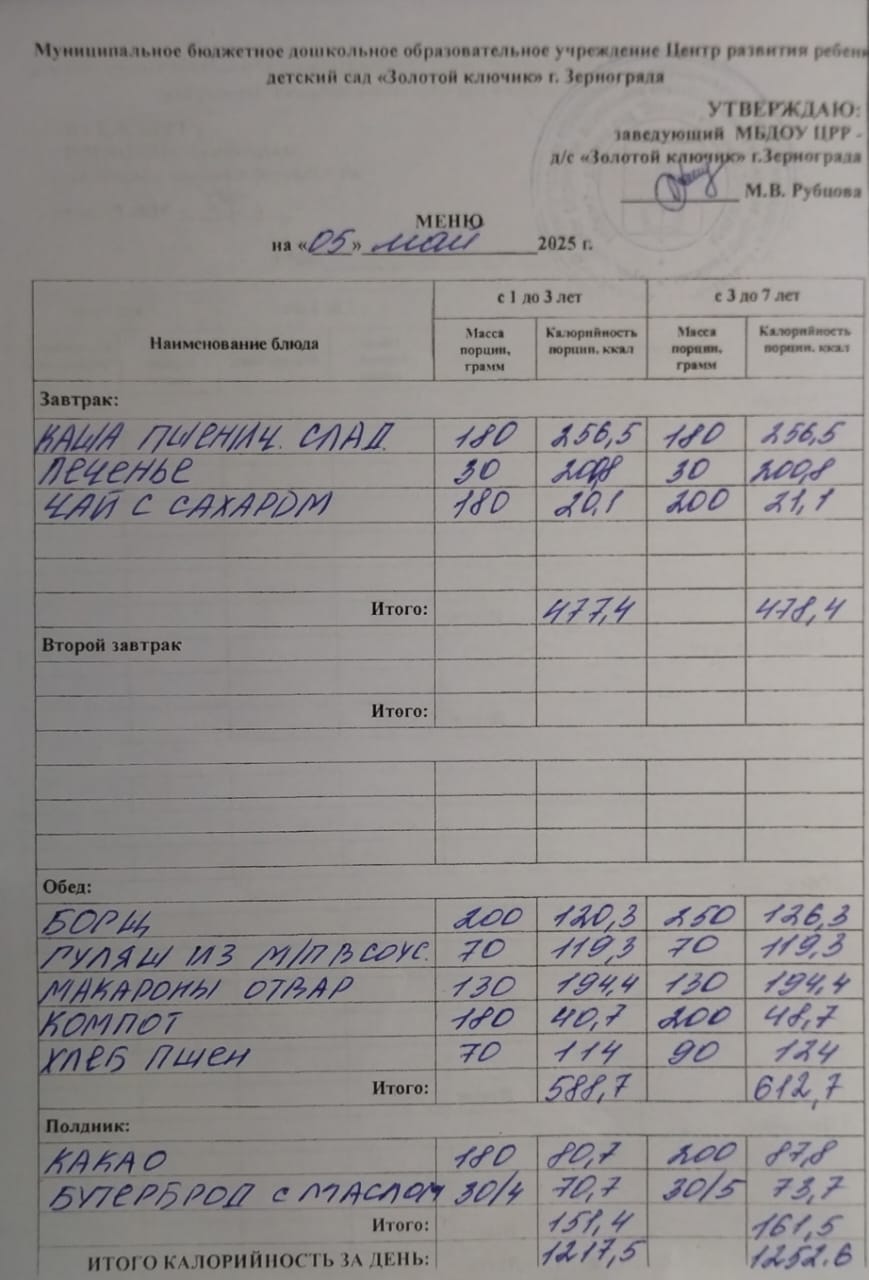 Муниципальное бюджетное дошкольное образовательное учреждение Центр развития ребен
детский сад «Золотой ключик» г. Зернограда
УТВЕРЖДАЮ:
заведующий МБДОУ ЦРР -
д/с «Золотой ключик» г.Зернограда
М.В. Рубцова
МЕНЮ
на «05» май 2025 г.
Наименование блюда с 1 до 3 лет с 3 до 7 лет
Масса порции, грамм Калорийность порции, ккал Масса порции, грамм Калорийность порции, ккал
Завтрак:
КАША ПШЕНИЧ. СЛАД. 180 256,5 180 256,5
ПЕЧЕНЬЕ 30 200,8 30 200,8
ЧАЙ С САХАРОМ 180 20,1 200 21,1
Итого: 477,4 478,4
Второй завтрак
Итого:
Обед:
БОРЩ 200 120,3 250 126,3
ГУЛЯШ ИЗ М/П В СОУС. 70 119,3 70 119,3
МАКАРОНЫ ОТВАР 130 194,4 130 194,4
КОМПОТ 180 40,7 200 48,7
ХЛЕБ ПШЕН 70 114 90 124
Итого: 588,7 612,7
Полдник:
КАКАО 180 80,7 200 87,8
БУТЕРБРОД с МАСЛОМ 30/4 70,7 30/5 73,7
Итого: 151,4 161,5
ИТОГО КАЛОРИЙНОСТЬ ЗА ДЕНЬ: 1217,5 1252.6